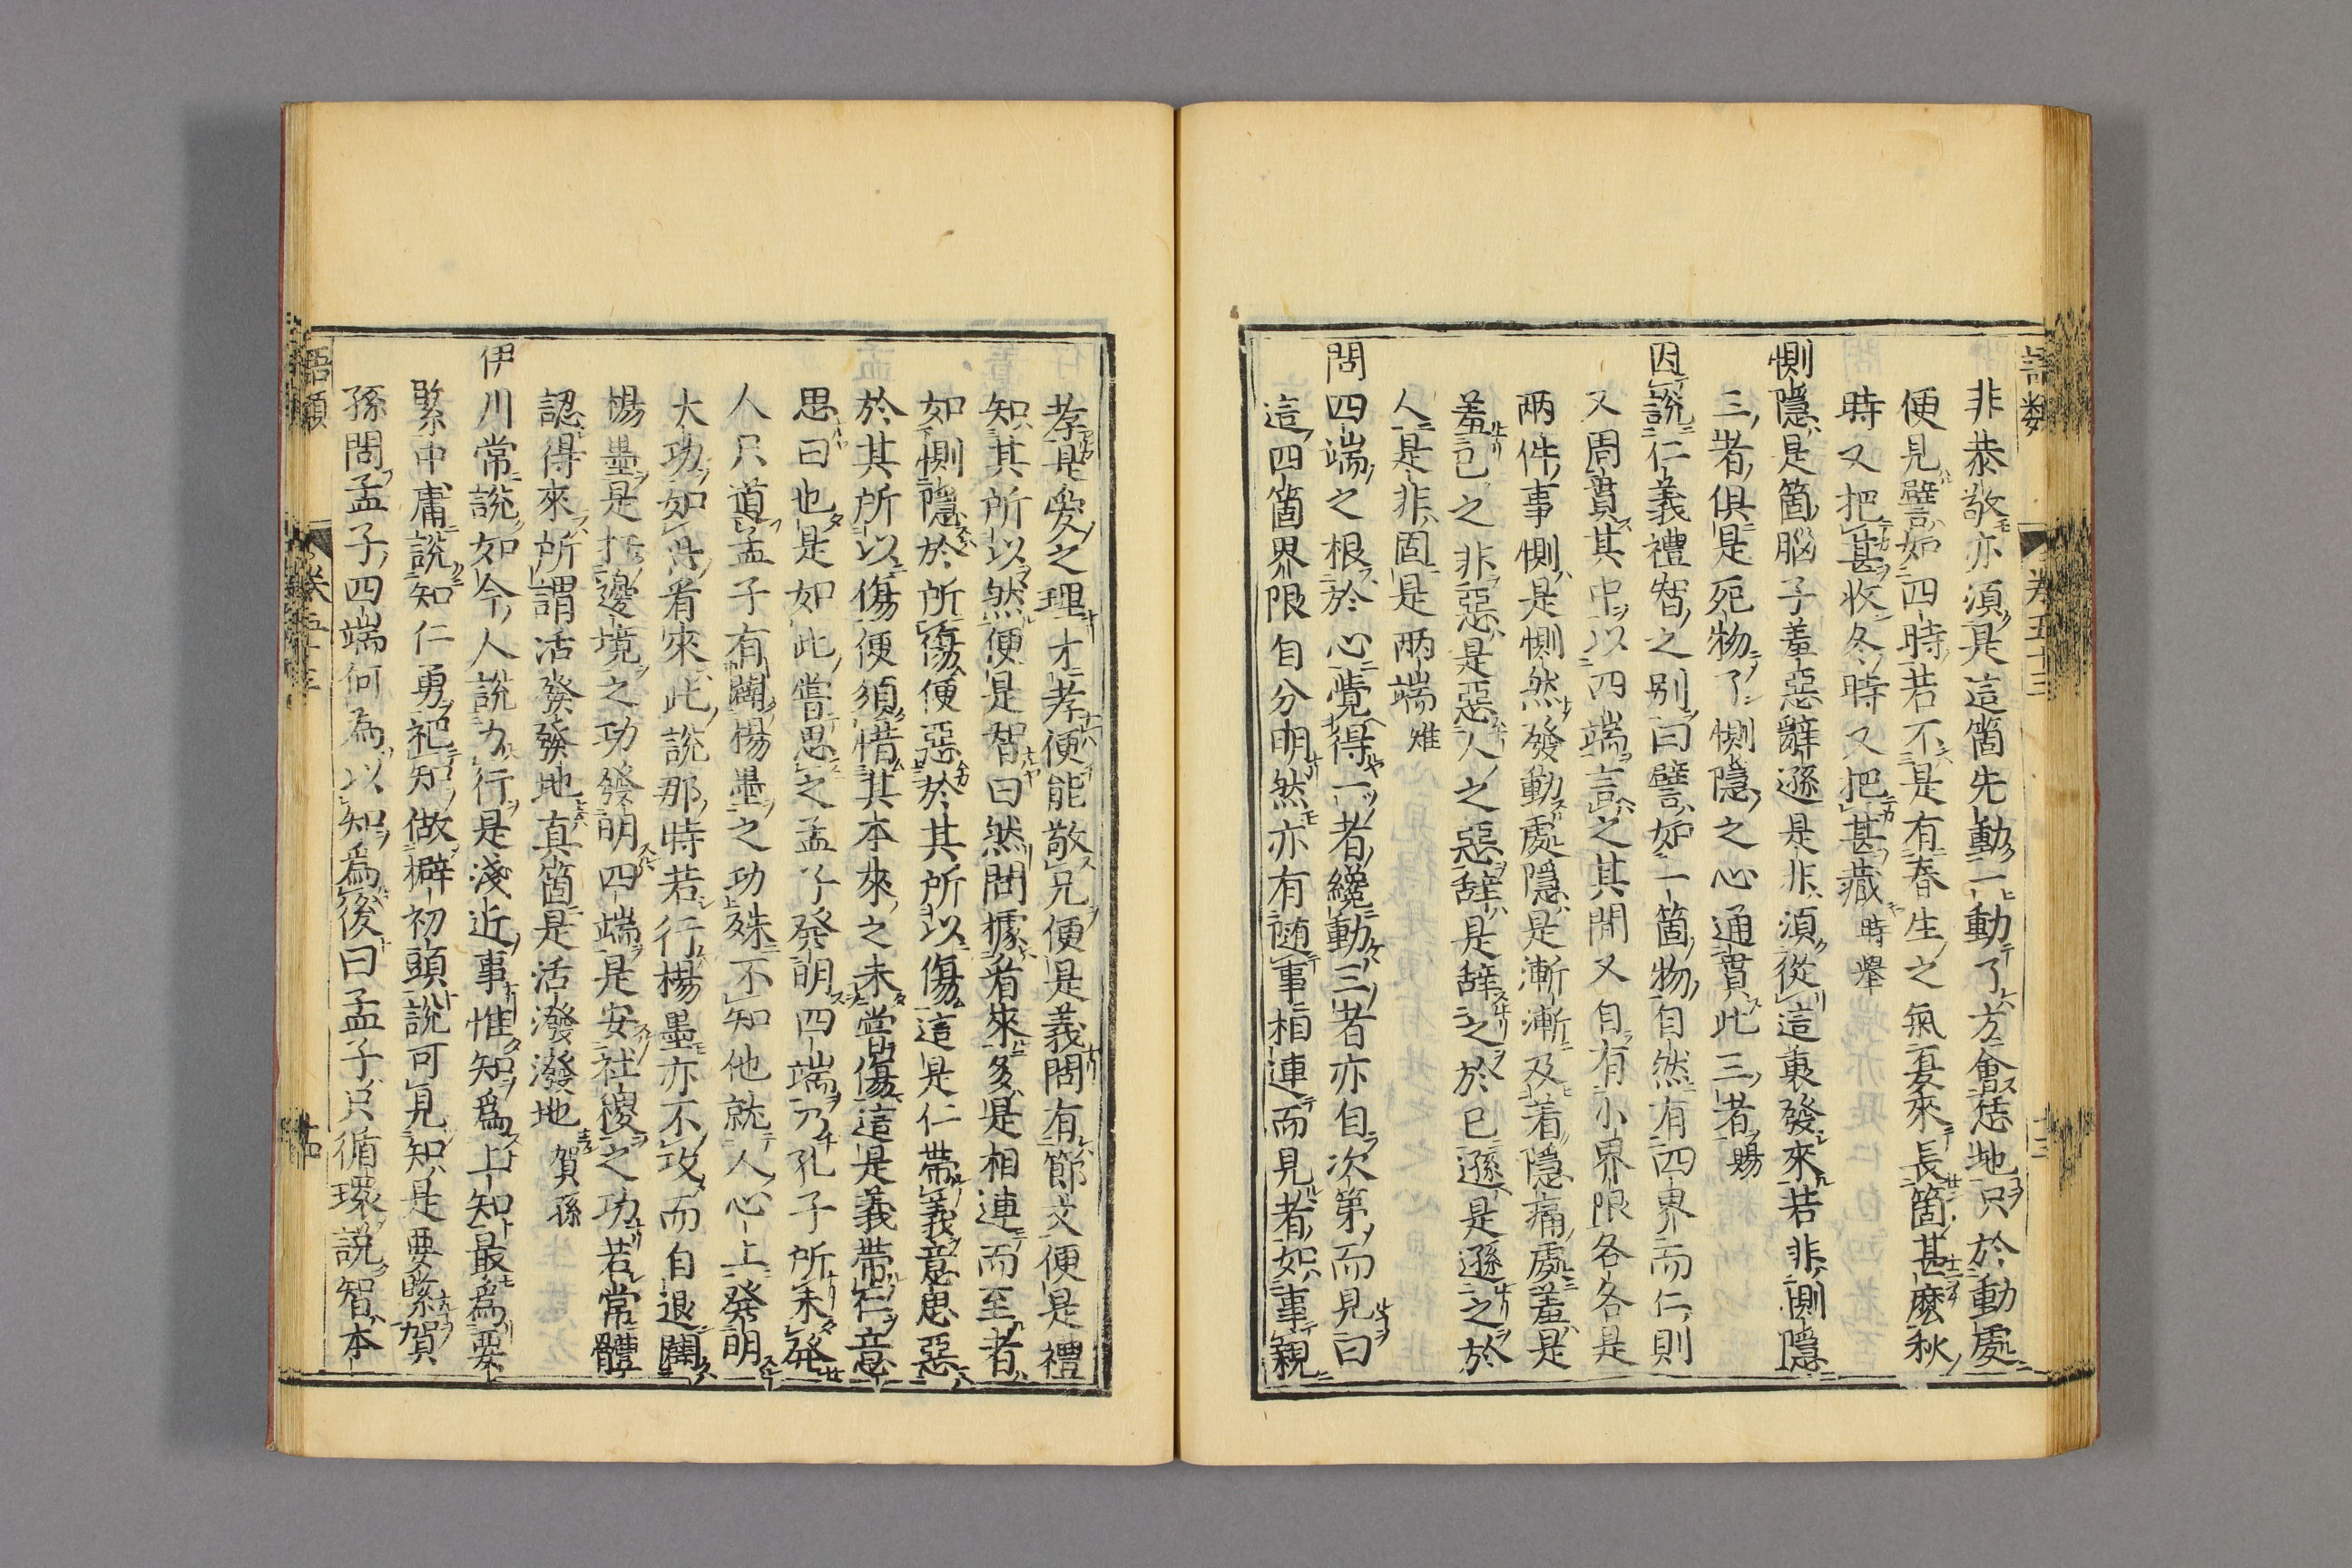 語類 卷五十三 十三
非恭敬亦須是這箇先動一動了方會恁地只於動處
便見譬如四時若不是有春生之氣夏來長箇甚麽秋
時又把甚收冬時又把甚藏 時舉
惻隱是箇腦子羞惡辭遜是非須從這裏發來若非惻隱
三者俱是死物了惻隱之心通貫此三者 賜
因說仁義禮智之別曰譬如一箇物自然有四界而仁則
又周貫其中以四端言之其間又自有小界限各各是
兩件事惻是惻然發動處隱是漸漸及着隱痛處羞是
羞己之非惡是惡人之惡辞是辞之於已遜是遜之於
人是非固是兩端 雉
問四端之根於心覺得一者纔動三者亦自次第而見曰
這四箇界限自分明然亦有随事相連而見者如事親
孝是愛之理才孝便能敬兄便是義問有節文便是禮
知其所以然便是智曰然問據看來多是相連而至者
如惻隱於所傷便惡於其所以傷這是仁帶義意思惡
於其所以傷便須惜其本來之未嘗傷這是義帶仁意
思曰也是如此嘗思之孟子發明四端乃孔子所未發
人只道孟子有闢楊墨之功殊不知他就人心上發明
大功如此看來此說那時若行楊墨亦不攻而自退闢
楊墨是扞邊境之功發明四端是安社稷之功若常體
認得來所謂活發發地真箇是活潑潑地 賀孫
伊川常說如今人說力行是淺近事惟知爲上知最爲要
緊中庸說知仁勇把知做擗初頭說可見知是要緊賀
孫問孟子四端何為以知爲後曰孟子只循環說智本
語類 卷五十三 十四